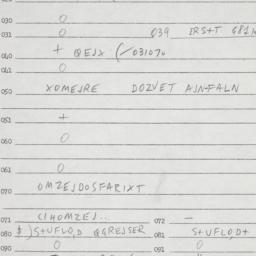 030 0
031 0 039 IRS+T 681
040 + QEJX (/031074
041 0
050 XOMEJRE DOZVET AJNFALN
051 +
060 0
061 0
070 OMZEJDOSFARIXT
071 CIHOMZEJ... 072 —
080 $)S+UFLO,D QGREJSER 081 S+UFLO,D+
090 0 091 0